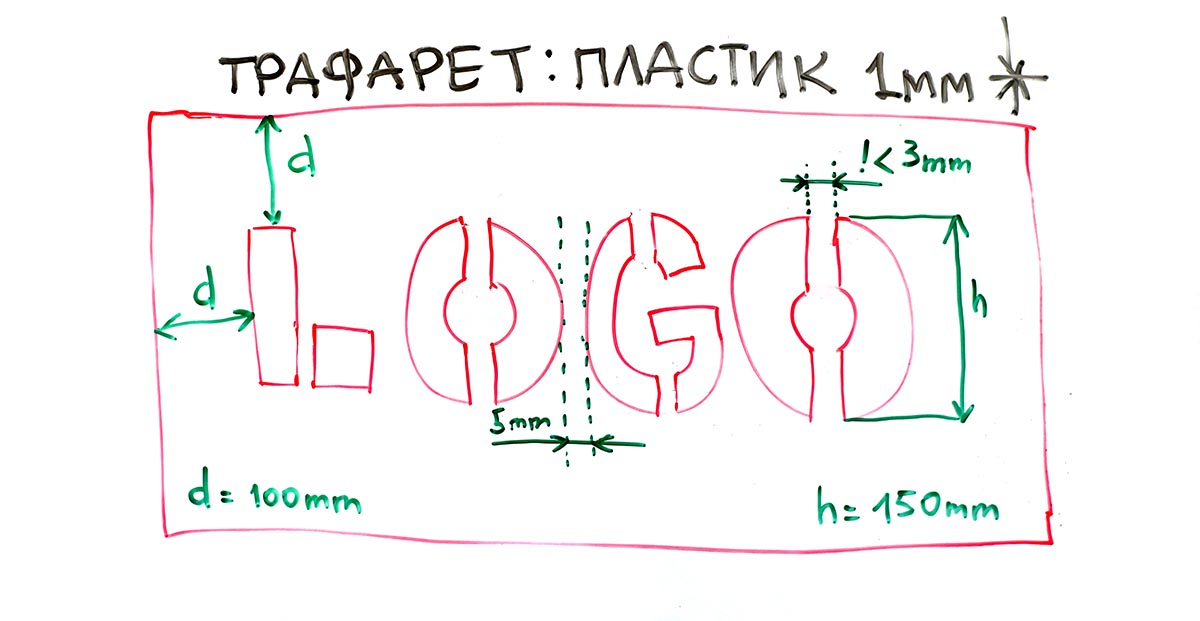 ТРАФАРЕТ: ПЛАСТИК 1мм
d
!< 3mm
d
LOGO
h
5mm
d = 100mm
h = 150mm